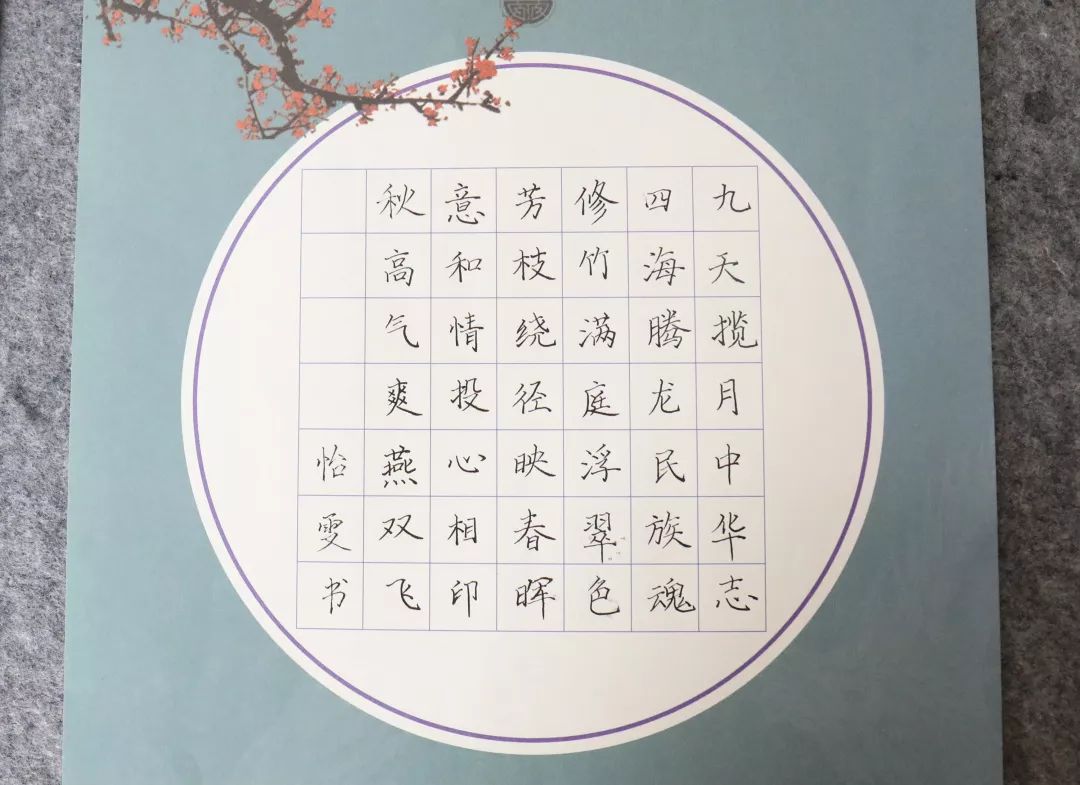 九天揽月中华志
四海腾龙民族魂
修竹满庭浮翠色
芳枝绕径映春晖
意和情投心相印
秋高气爽燕双飞
怡雯书